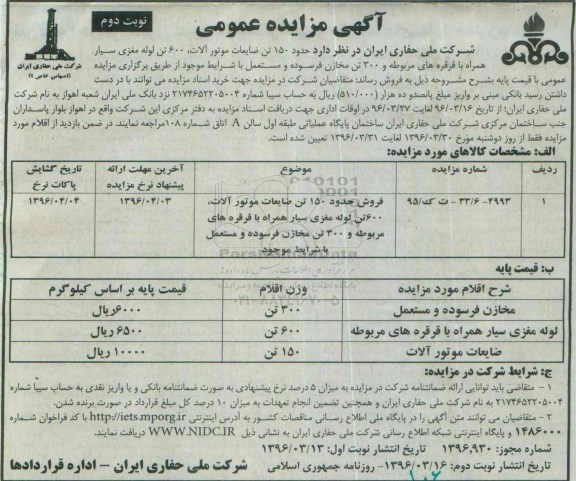 آگهی مزایده عمومی
نوبت دوم
شرکت ملی حفاری ایران
(سهامی خاص)
شرکت ملی حفاری ایران در نظر دارد حدود ۱۵۰ تن ضایعات موتور آلات، ۶۰۰ تن لوله مغزی سیار
همراه با قرقره های مربوطه و ۳۰۰ تن مخازن فرسوده و مستعمل با شرایط موجود از طریق برگزاری مزایده
عمومی با قیمت پایه بشرح مشروحه ذیل به فروش رساند: متقاضیان شرکت در مزایده جهت خرید اسناد مزایده می توانند با در دست
داشتن رسید بانکی مبنی بر واریز مبلغ پانصدو ده هزار (۵۱۰/۰۰۰) ریال به حساب سیبا شماره ۲۱۷۴۶۵۲۲۰۵۰۰۴ نزد بانک ملی ایران شعبه اهواز به نام شرکت
ملی حفاری ایران؛ از تاریخ ۹۶/۰۳/۱۶ لغایت ۹۶/۰۳/۲۷ در اوقات اداری جهت دریافت اسناد مزایده به دفتر مرکزی این شرکت واقع در اهواز بلوار پاسداران
جنب ساختمان مرکزی شرکت ملی حفاری ایران ساختمان پایگاه عملیاتی طبقه اول سالن A اتاق شماره ۱۰۸ مراجعه نمایند. در ضمن بازدید از اقلام مورد
مزایده فقط از روز دوشنبه مورخ ۱۳۹۶/۰۳/۳۰ لغایت ۱۳۹۶/۰۳/۳۱ تعیین شده است.
الف: مشخصات کالاهای مورد مزایده:
ردیف شماره مزایده موضوع آخرین مهلت ارائه پیشنهاد نرخ مزایده تاریخ گشایش پاکات نرخ
۱ ۴۹۹۳- ۳۳/۶ - ت ک/۹۵ فروش حدود ۱۵۰ تن ضایعات موتور آلات، ۱۳۹۶/۰۴/۰۳ ۱۳۹۶/۰۴/۰۴
۶۰۰تن لوله مغزی سیار همراه با قرقره های
مربوطه و ۳۰۰ تن مخازن فرسوده و مستعمل
با شرایط موجود
ب: قیمت پایه
شرح اقلام مورد مزایده وزن اقلام قیمت پایه بر اساس کیلوگرم
مخازن فرسوده و مستعمل ۳۰۰ تن ۶۰۰۰ریال
لوله مغزی سیار همراه با قرقره های مربوطه ۶۰۰ تن ۶۵۰۰ ریال
ضایعات موتور آلات ۱۵۰ تن ۱۰۰۰۰ ریال
ج: شرایط شرکت در مزایده:
۱ - متقاضی باید توانایی ارائه ضمانتنامه شرکت در مزایده به میزان ۵ درصد نرخ پیشنهادی به صورت ضمانتنامه بانکی و یا واریز نقدی به حساب سیبا شماره
۲۱۷۴۶۵۲۲۰۵۰۰۴ به نام شرکت ملی حفاری ایران و همچنین تضمین انجام تعهدات به میزان ۱۰ درصد کل مبلغ قرارداد در صورت برنده شدن.
۲ - متقاضیان می توانند متن آگهی را در پایگاه ملی اطلاع رسانی مناقصات کشور به آدرس اینترنتی http://iets.mporg.ir با کد فراخوان شماره
۱۴۸۶۰۰۰ و پایگاه اینترنتی شبکه اطلاع رسانی شرکت ملی حفاری ایران به نشانی ذیل WWW.NIDC.IR دریافت نمایند.
شماره مجوز: ۱۳۹۶,۹۳۰ تاریخ انتشار نوبت اول: ۱۳۹۶/۰۳/۱۳
تاریخ انتشار نوبت دوم: ۱۳۹۶/۰۳/۱۶- روزنامه جمهوری اسلامی
شرکت ملی حفاری ایران - اداره قراردادها